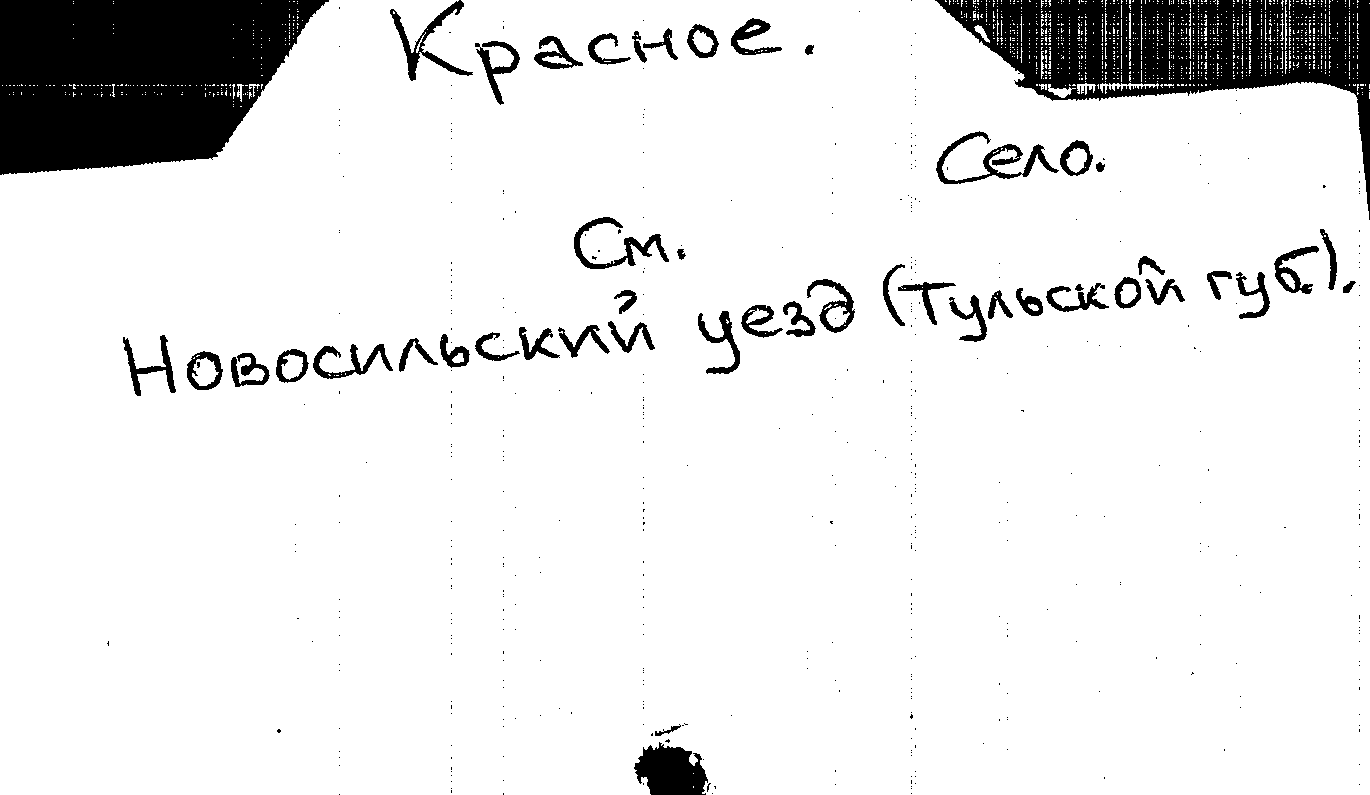 Красное.
Село.
См.
Новосильский уезд (Тульской губ.).